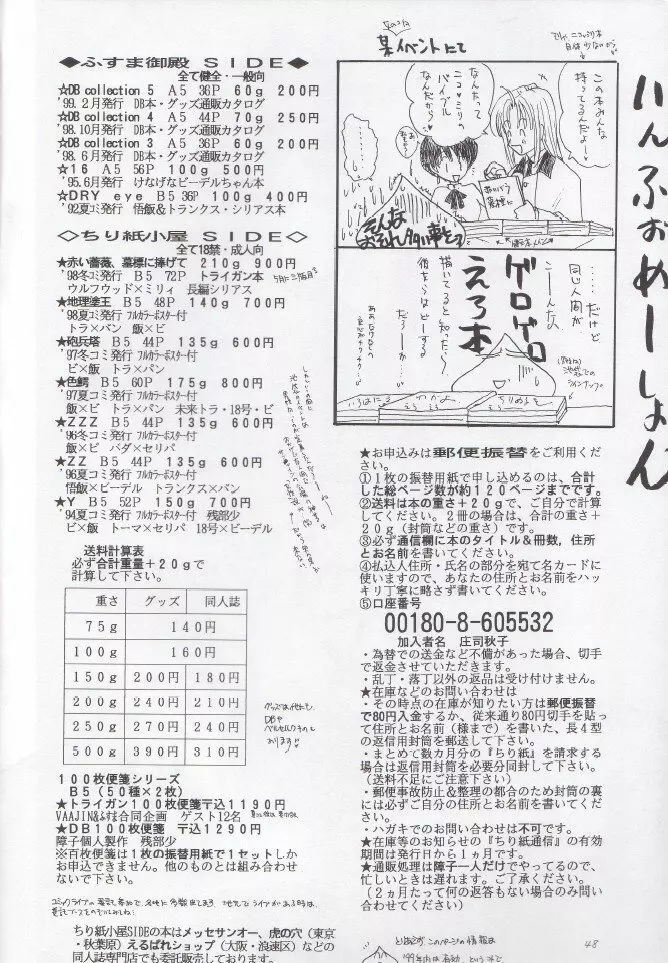 いんふぉめーしょん
◆ふすま御殿 SIDE◆
全て健全・一般向
☆DB collection 5 A5 36P 60g 200円
'99.2月発行 DB本・グッズ通販カタログ
☆DB collection 4 A5 44P 70g 250円
'98.10月発行 DB本・グッズ通販カタログ
☆DB collection 3 A5 36P 60g 200円
'98.6月発行 DB本・グッズ通販カタログ
☆16 A5 56P 100g 500円
'95.6月発行 けなげなビーデルちゃん本
☆DRY eye B5 36P 100g 400円
'92夏コミ発行 悟飯&トランクス・シリアス本
◇ちり紙小屋 SIDE◇
全て18禁・成人向
★赤い薔薇、墓標に捧げて 210g 900円
'98冬コミ発行 B5 72P トライガン本
ウルフウッド×ミリィ 長編シリアス
★地理塗王 B5 48P 140g 700円
'98夏コミ発行 フルカラーポスター付
トラ×パン 飯×ビ
★砲兵塔 B5 44P 135g 600円
'97冬コミ発行 フルカラーポスター付
ビ×飯 トラ×パン
★色鰐 B5 60P 175g 800円
'97夏コミ発行 フルカラーポスター付
飯×ビ トラ×パン 未来トラ・18号・ビ
★ZZZ B5 44P 135g 600円
'96冬コミ発行 フルカラーポスター付
飯×ビ バダ×セリパ
★ZZ B5 44P 135g 600円
'96夏コミ発行 フルカラーポスター付
悟飯×ビーデル トランクス×パン
★Y B5 52P 150g 700円
'94夏コミ発行 フルカラーポスター付 残部少
ビ×飯 トーマ×セリパ 18号×ビーデル
送料計算表
必ず合計重量+20gで
計算して下さい。
重さ グッズ 同人誌
75g 140円
100g 160円
150g 200円 180円
200g 240円 210円
250g 270円 240円
500g 390円 310円
100枚便箋シリーズ
B5(50種×2枚)
★トライガン100枚便箋〒込1190円
VAAJIN&ふすま合同企画 ゲスト12名
★DB100枚便箋 〒込1290円
障子個人製作 残部少
※百枚便箋は1枚の振替用紙で1セットしか
お申込できません。他のものとは組み合わせ
ないで下さい。
ちり紙小屋SIDEの本はメッセサンオー、虎の穴(東京
・秋葉原)えるぱれショップ(大阪・浪速区)などの
同人誌専門店でも委託販売しております。
某イベントにて
この本みんな
持ってるんだよー
なんたって
ニコ×ミリの
バイブル
なんだから
そんな
おそれ多い事を
……だけど
同じ人間が
こーんなの
ゲロゲロ
えろ本
描いてると知ったら
彼女らはどーする
だろーか…
★お申込みは郵便振替をご利用くだ
さい。
①1枚の振替用紙で申し込めるのは、合計
した総ページ数が約120ページまでです。
②送料は本の重さ+20gで、ご自分で計算
してください。2冊の場合は、合計の重さ+
20g(封筒などの重さ)です。
③必ず通信欄に本のタイトル&冊数、住所
とお名前を書いてください。
④払込人住所・氏名の部分を宛て名カードに
使いますので、あなたの住所とお名前をハッ
キリ丁寧に略さず書いてください。
⑤口座番号
00180-8-605532
加入者名 庄司秋子
・為替での送金など不備があった場合、切手
で返金させていただきます。
・乱丁・落丁以外の返品は受け付けません。
★在庫などのお問い合わせは
・その時点の在庫が知りたい方は郵便振替
で80円入金するか、従来通り80円切手を貼っ
て住所とお名前(様まで)を書いた、長4型
の返信用封筒を郵送して下さい。
・まとめて数カ月分の『ちり紙』を請求する
場合は返信用封筒を必要分同封して下さい。
(送料不足にご注意下さい)
・郵便事故防止&整理の都合のため封筒の裏
には必ずご自分の住所とお名前を書いてくだ
さい。
・ハガキでのお問い合わせは不可です。
★在庫等のお知らせの『ちり紙通信』の有効
期間は発行日から1ヵ月です。
★通販処理は障子一人だけでやってるので、
忙しいときは遅れます。ご了承ください。
(2ヵ月たって何の返答もない場合のみ問い
合わせてください)
48